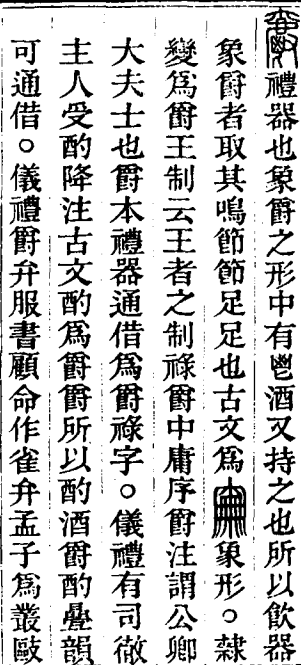 禮器也象爵之形中有鬯酒又持之也所以飲器
象爵者取其鳴節節足足也古文爲象形○隸
變爲爵王制云王者之制祿爵中庸序爵注謂公卿
大夫士也爵本禮器通借爲爵祿字○儀禮有司徹
主人受酌降注古文酌爲爵爵所以酌酒爵酌疊韻
可通借○儀禮爵弁服書顧命作雀弁孟子爲叢敺